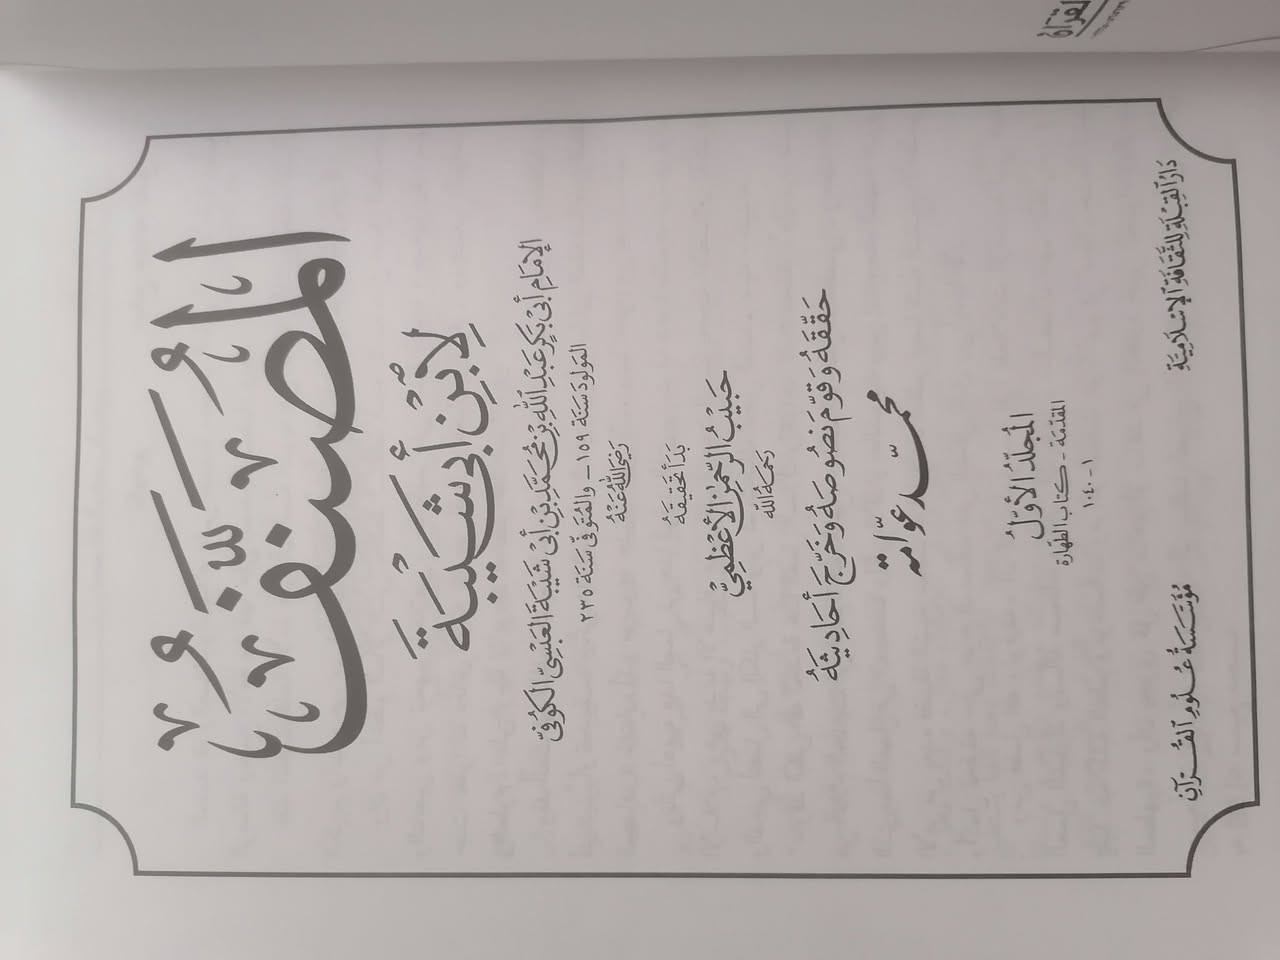 المُصَنَّفُ
لِابْنِ أَبِي شَيْبَةَ
الإِمَامِ أَبِي بَكْرٍ عَبْدِ اللهِ بْنِ مُحَمَّدِ بْنِ أَبِي شَيْبَةَ العَبْسِيِّ الكُوفِيِّ
المَولُودِ سَنَةَ ١٥٩ - وَالمُتَوَفَّى سَنَةَ ٢٣٥
رَضِيَ اللهُ عَنْهُ
بَدَأَ تَحْقِيقَهُ
حَبِيْبُ الرَّحْمٰنِ الأَعْظَمِيّ
رَحِمَهُ اللهُ
حَقَّقَهُ وَقَوَّمَ نُصُوصَهُ وَخَرَّجَ أَحَادِيثَهُ
محمد عوّامة
المُجَلَّدُ الأَوَّلُ
المقدّمَة - كتاب الطهارة
١ - ١٠٤٠
دَارُ القِبْلَةِ لِلثَّقَافَةِ الإِسْلَامِيَّةِ
مُؤَسَّسَةُ عُلُومِ القُرْآنِ
القرآن